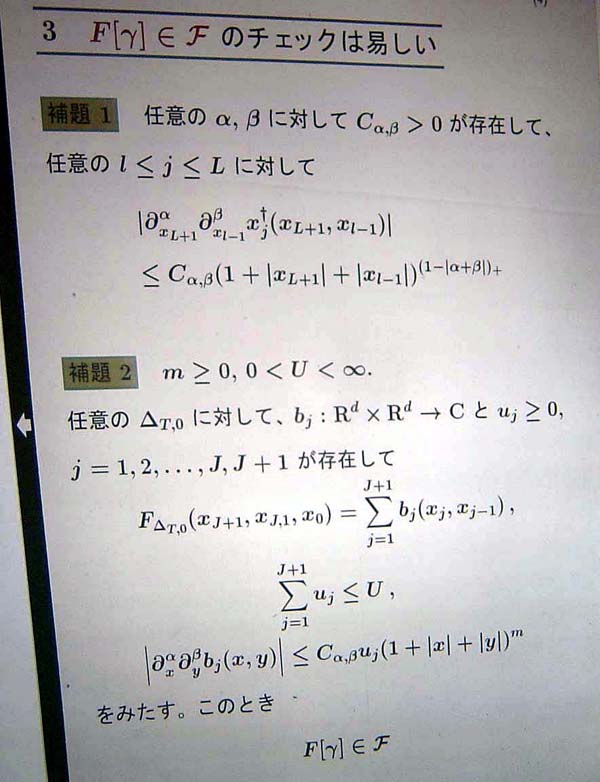 3 F[γ] ∈ 𝓕 のチェックは易しい
補題 1 任意の α, β に対して C_{α,β} > 0 が存在して、
任意の l ≤ j ≤ L に対して
|∂^α_{x_{L+1}} ∂^β_{x_{l-1}} x^†_j(x_{L+1}, x_{l-1})|
≤ C_{α,β}(1 + |x_{L+1}| + |x_{l-1}|)^{(1-|α+β|)_+}
補題 2 m ≥ 0, 0 < U < ∞.
任意の Δ_{T,0} に対して、b_j : R^d × R^d → C と u_j ≥ 0,
j = 1, 2, …, J, J + 1 が存在して
F_{Δ_{T,0}}(x_{J+1}, x_{J,1}, x_0) = ∑_{j=1}^{J+1} b_j(x_j, x_{j-1}) ,
∑_{j=1}^{J+1} u_j ≤ U ,
|∂^α_x ∂^β_y b_j(x, y)| ≤ C_{α,β} u_j(1 + |x| + |y|)^m
をみたす。このとき
F[γ] ∈ 𝓕